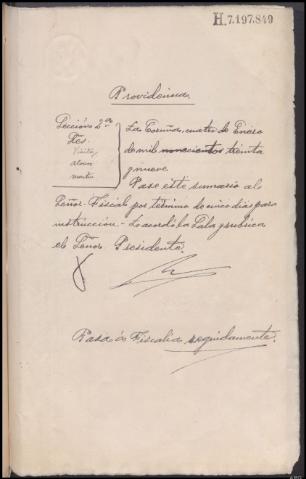 H.7.197.849
Providencia.
Sección 2ª
Sres.
La Coruña, cuatro de Enero
de mil novecientos treinta
y nueve.
Pase este sumario al
Señor Fiscal por término de cinco dias para
instrucción.- Lo acordó la Sala y rubrica
el Señor Presidente.
Pasa á Fiscalía seguidamente.